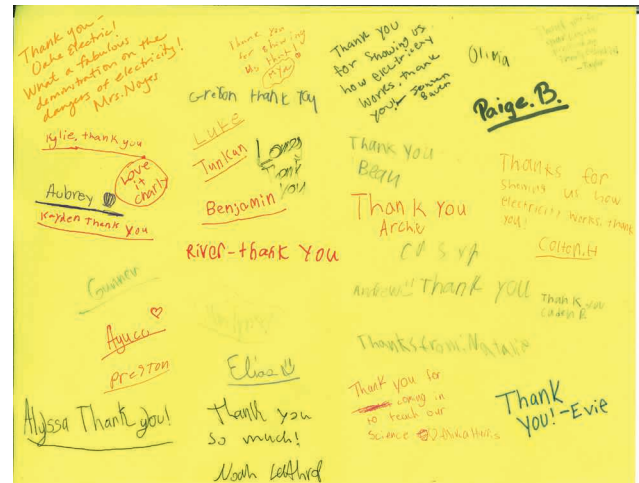 Thank you -
Oahe Electric!
What a fabulous
demonstration on the
dangers of electricity!
Mrs. Noyes
Kylie, thank you
Love
it
charly
Aubrey
Kayden Thank you
Gunner
Ayuca
preston
Alyssa Thank you!
Thank you
for showing
us that!
Mya
Greton thank you
Luke
Tunkan
Lomas
Thank
you
Benjamin
River-thank you
Elias
Thank you
so much!
Noah
Thank you
for showing us
how electricity
works, thank
you!
Thank you
Beau
Thank you
Archie
Andrews Thank you
Thanks from: Natalie
Thank you for
coming in
to teach our
Science
Olivia
Paige. B.
Thanks for
showing us how
electricity works, thank
you!
Colton.H
Thank you
Thank
you!-Evie